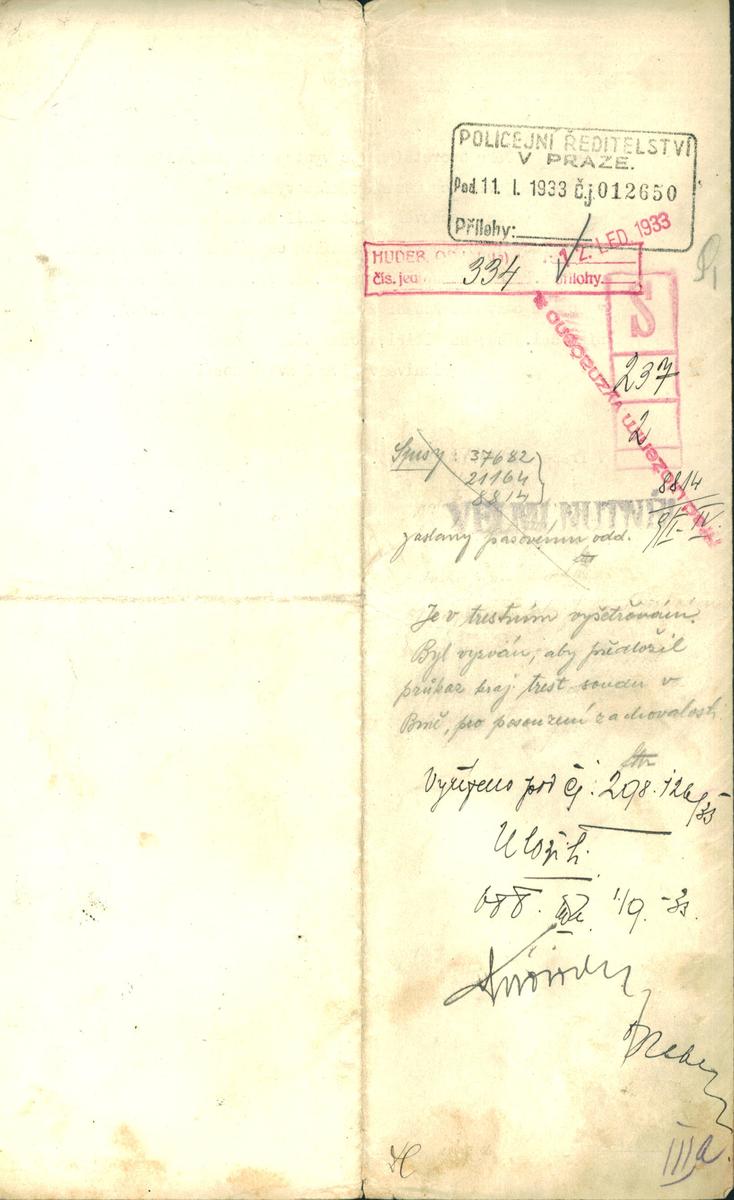 POLICEJNÍ ŘEDITELSTVÍ
V PRAZE.
Pod. 11. I. 1933 Č.j. 012650
Přílohy:
12. LED. 1933
čís. jed. 334 přílohy
S
237
2
Spisy: 37682
21164
8814
8814
VELMI NUTNÉ
zaslány pasovému odd.
Je v trestním vyšetřování.
Byl vyzván, aby předložil
průkaz kraj. trest. soudu v
Brně, pro posouzení zachovalosti
Vyřízeno pod čj. 208.126/33
Uložiti.
1/9. -33.
IIIa.